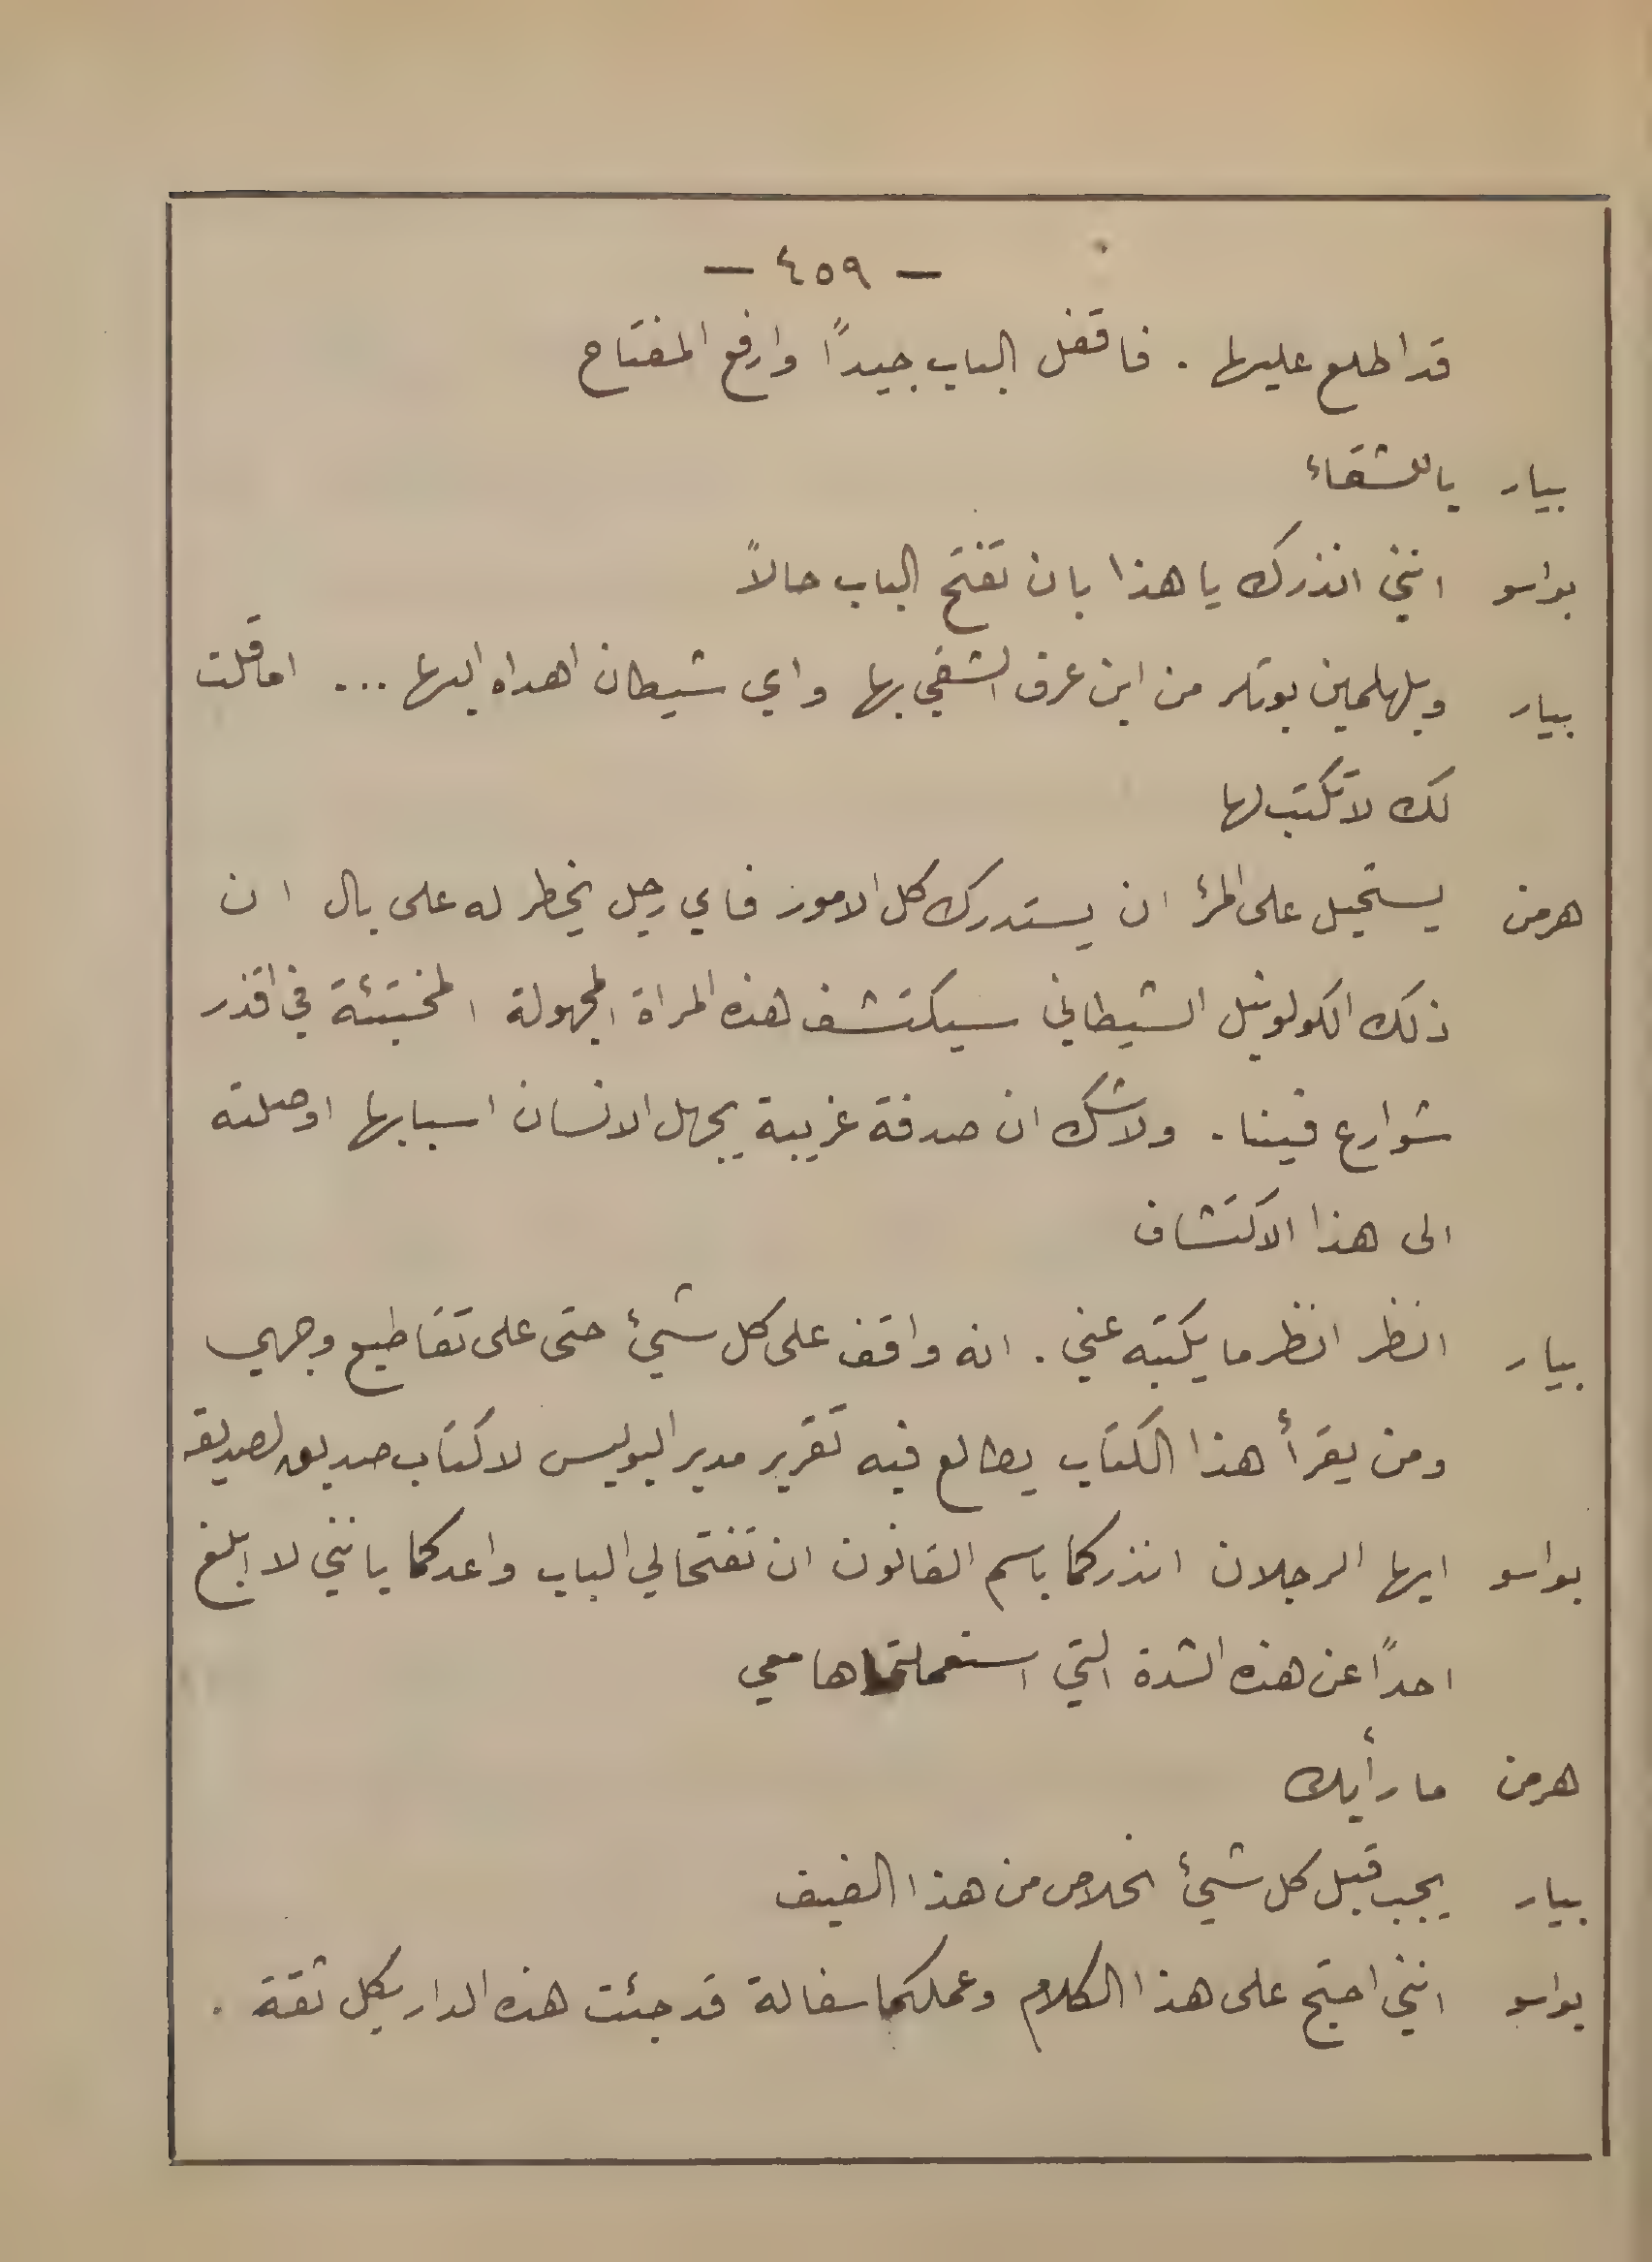 — ٤٥٩ —
قد اطلع عليها . فاقفل الباب جيداً وارفع المفتاح
بيار ياللشقاء
بواسو انني انذرك يا هذا بان تفتح الباب حالاً
بيار ويلهلمين بوتلر من اين عرف الشقي بها واي شيطان اهداه اليها ... اما قلت
لك لا تكتب لها
هرمن يستحيل على المرء ان يستدرك كل الامور فاي رجل يخطر له على بال ان
ذلك الكولونيل الشيطاني سيكتشف هذه المراة المجهولة المختبئة في اقذر
شوارع فيينا . ولاشك ان صدفة غريبة يجهل الانسان اسبابها اوصلته
الى هذا الاكتشاف
بيار انظر انظر ما يكتبه عني . انه واقف على كل شيئ حتى على تقاطيع وجهي
ومن يقرأ هذا الكتاب يطالع فيه تقرير مدير البوليس لا كتاب صديق لصديقه
بواسو ايها الرجلان انذركما باسم القانون ان تفتحا لي الباب واعدكما بانني لا ابلغ
احداً عن هذه الشدة التي استعملتماها معي
هرمن ما رأيك
بيار يجب قبل كل شيئ الخلاص من هذا الضيف
بواسو انني احتج على هذا الكلام وعملكما سفالة قد جئت هذه الدار بكل ثقة .